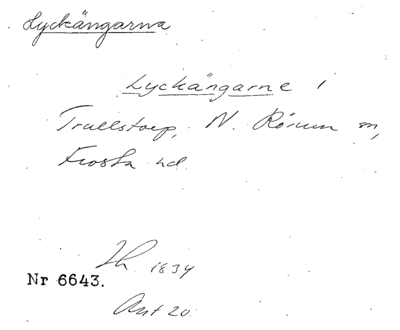 Lyckängarna
Lyckängarne i
Trulstorp, N. Rörum sn,
Frosta hd.
Lh. 1834
Nr 6643.
Ant 20.